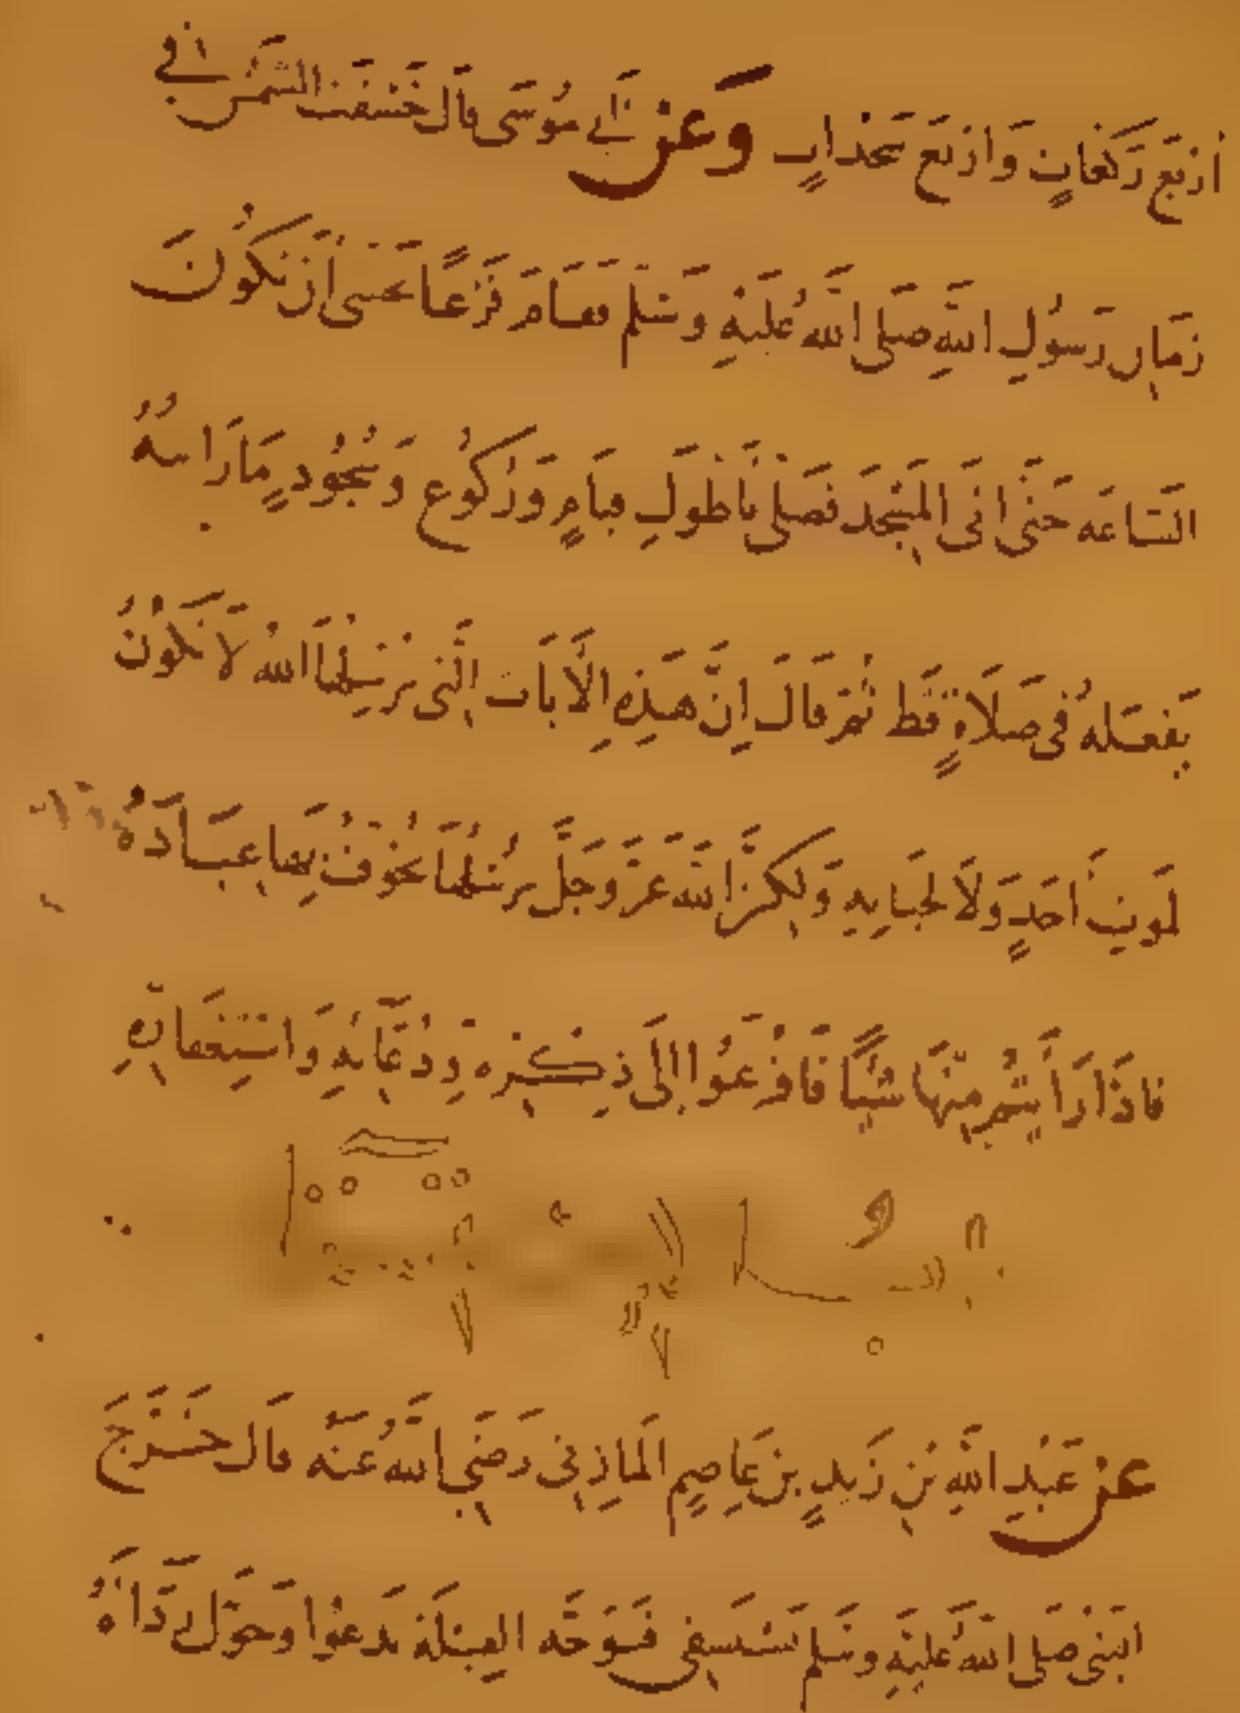 أربع ركعات وأربع سجدات وعن أبي موسى قال خسفت الشمس في
زمان رسول الله صلى الله عليه وسلم فقام فزعا يخشى أن تكون
الساعة حتى أتى المسجد فصلى بأطول قيام وركوع وسجود ما رأيته
يفعله في صلاة قط ثم قال إن هذه الآيات التي يرسلها الله لا تكون
لموت أحد ولا لحياته ولكن الله عز وجل يرسلها يخوف بها عباده
فإذا رأيتم منها شيئا فافزعوا إلى ذكره ودعائه واستغفاره
باب الاستسقاء
عن عبد الله بن زيد بن عاصم المازني رضي الله عنه قال خرج
النبي صلى الله عليه وسلم يستسقي فتوجه القبلة يدعوا وحول رداءه